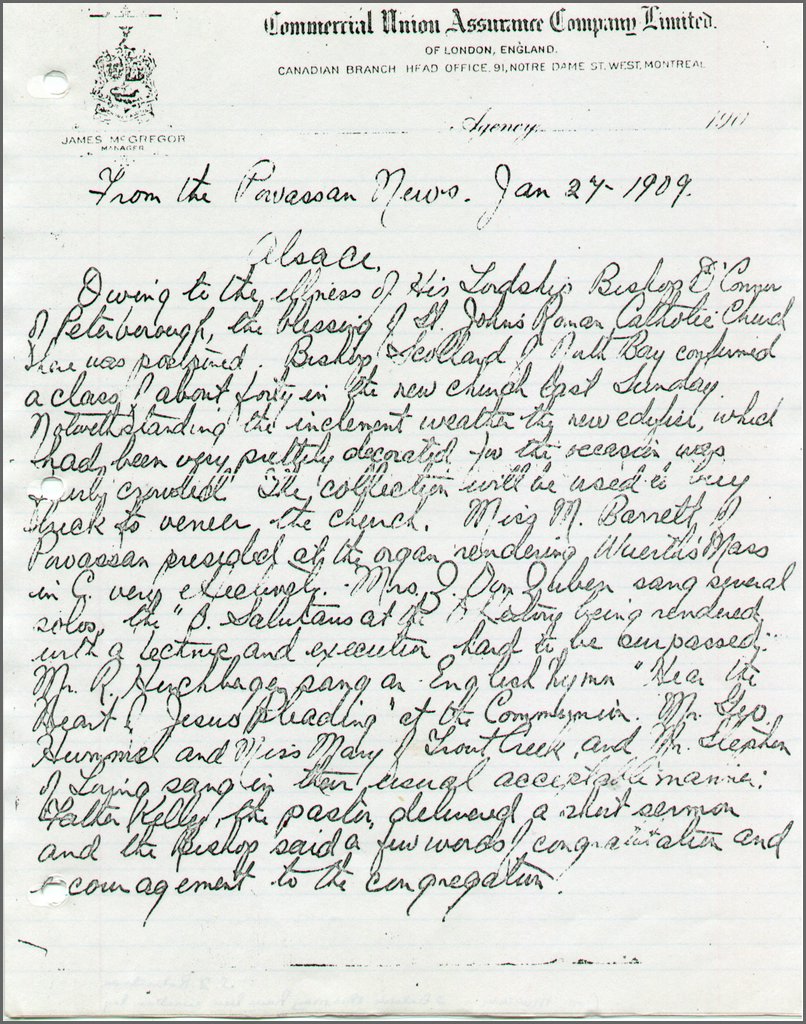 Commercial Union Assurance Company Limited.
OF LONDON, ENGLAND.
CANADIAN BRANCH HEAD OFFICE, 91, NOTRE DAME ST. WEST, MONTREAL
Agency 190
JAMES McGREGOR
MANAGER
From the Powassan News. Jan 27-1909.
Alsace.
Owing to the illness of His Lordship Bishop O'Connor
of Peterborough, the blessing of St. John's Roman Catholic Church
there was postponed. Bishop Scollard of North Bay confirmed
a class of about forty in the new church last Sunday.
Notwithstanding the inclement weather the new edifice, which
had been very prettily decorated for the occasion was
fairly crowded. The collection will be used to buy
brick to veneer the church. Miss M. Barrett of
Powassan presided at the organ rendering Mass
in G. very effectively. Mrs. Z. Von Zuben sang several
solos, the "O. Salutaris at the being rendered
with a technic and execution hard to be surpassed.
Mr. R. sang an English hymn "Hear the
Heart of Jesus Pleading" at the Communion. Mr. Geo.
Hummel and Miss Mary of Trout Creek, and Mr. Stephen
of Loring sang in their usual acceptable manner.
Father Kelly, the pastor, delivered a short sermon
and the Bishop said a few words of congratulation and
encouragement to the congregation.